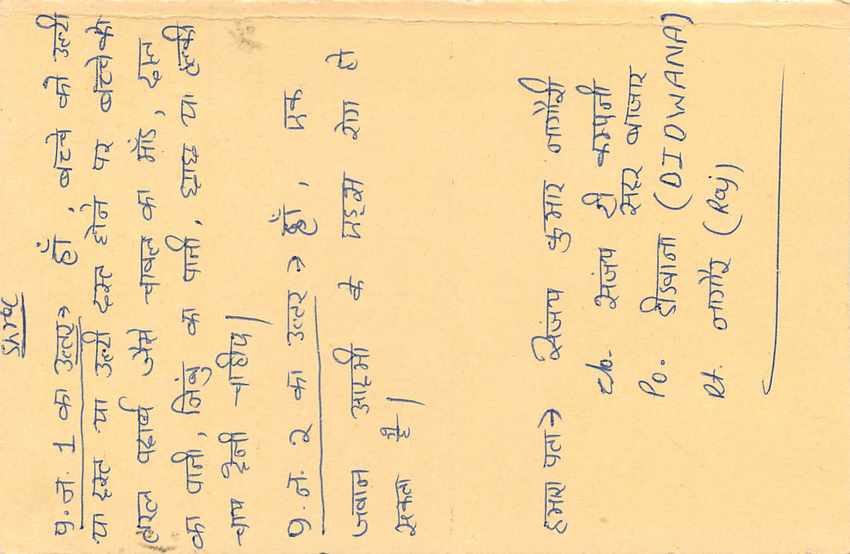 उत्तर
प्र. न. 1 का उत्तर → हाँ, बच्चे को उल्टी
या दस्त या उल्टी दस्त होने पर बच्चे को
तरल पदार्थ जैसे चावल का मांड, दाल
का पानी, निंबु का पानी, छाछ या हल्की
चाय देनी चाहिए।
प्र. न. 2 का उत्तर → हाँ, एक
जवान आदमी के एड्स रोग हो
सकता है।
हमारा पता → संजय कुमार नागौरी
c/o. संजय टी कम्पनी
सदर बाजार
Po. डीडवाना (DIDWANA)
नागौर (Raj)